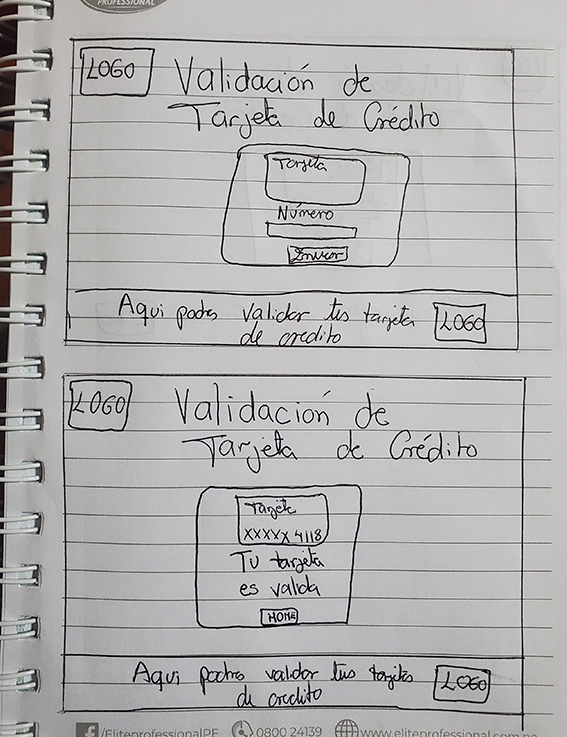 PROFESSIONAL
LOGO
Validación de
Tarjeta de Crédito
Tarjeta
Número
Enviar
Aqui podras validar tus tarjetas
de credito
LOGO
LOGO
Validación de
Tarjeta de Crédito
Tarjeta
XXXXX 4118
Tu tarjeta
es valida
HOME
Aqui podras validar tus tarjetas
de credito
LOGO
/EliteprofessionalPE 0800 24139 www.eliteprofessional.com.pe